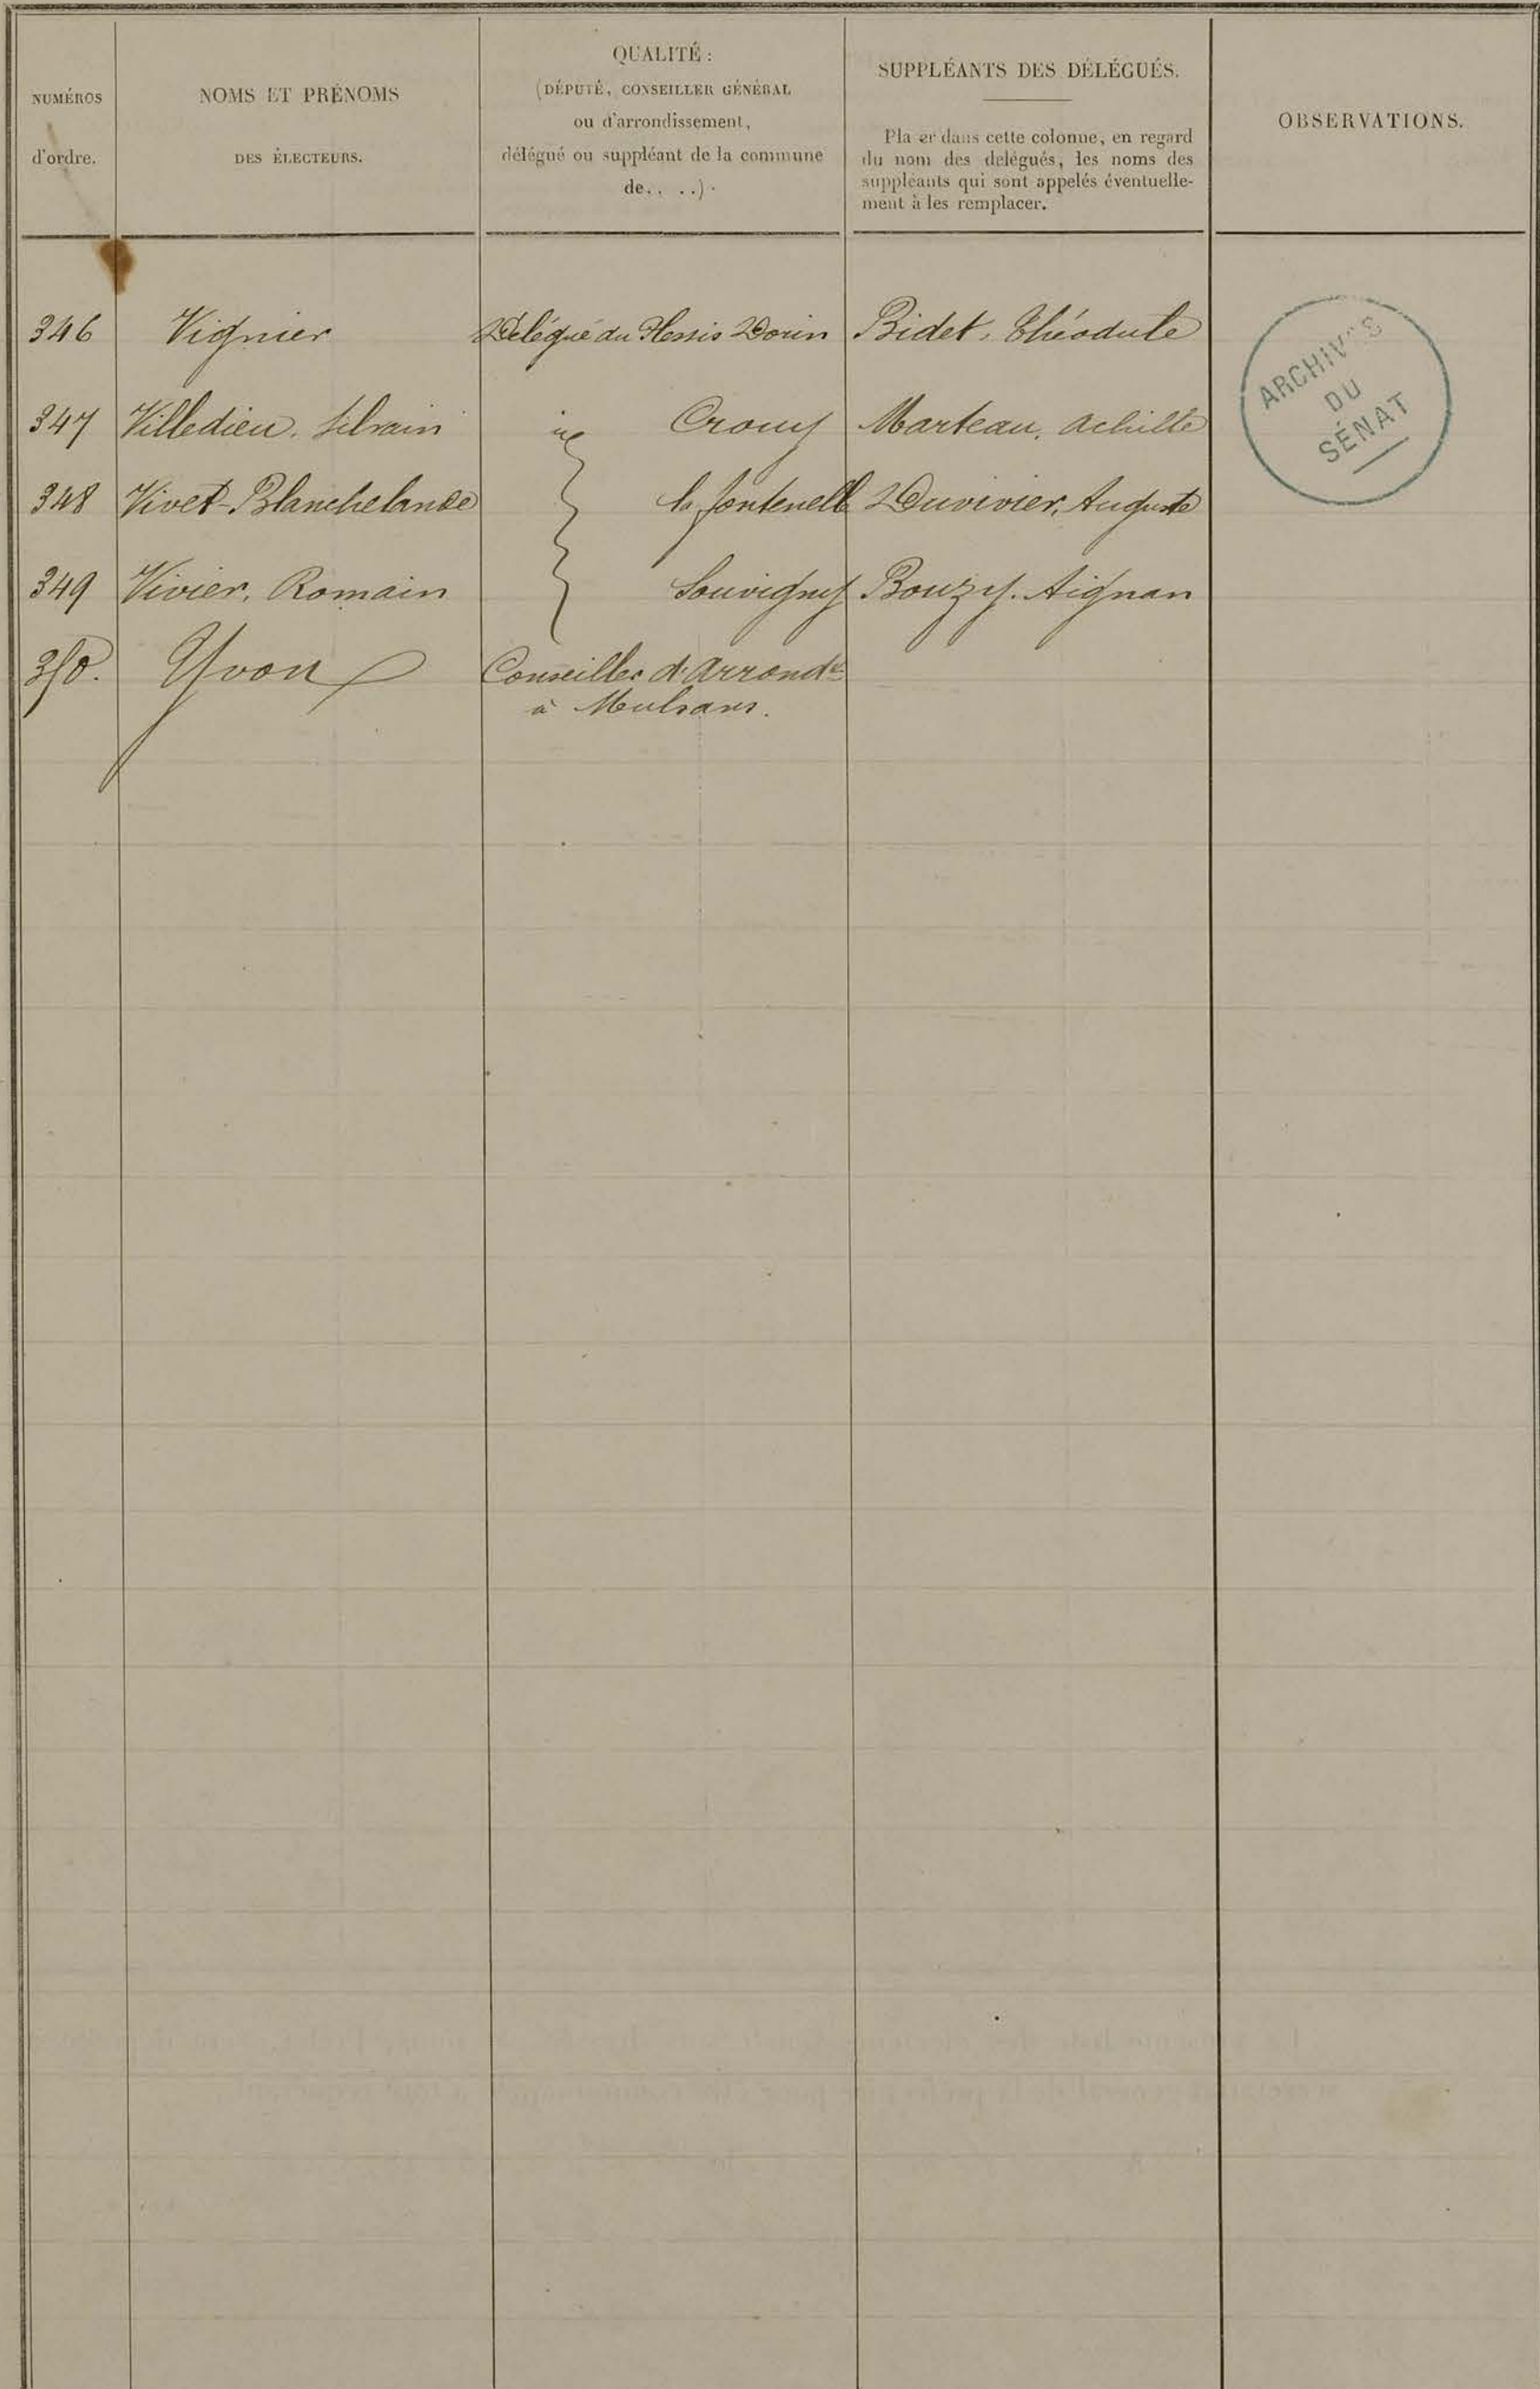 NUMÉROS
d'ordre.
NOMS ET PRÉNOMS
DES ÉLECTEURS.
QUALITÉ :
(DÉPUTÉ, CONSEILLER GÉNÉRAL
ou d'arrondissement,
délégué ou suppléant de la commune
de.. ..).
SUPPLÉANTS DES DÉLÉGUÉS.
Pla er dans cette colonne, en regard
du nom des délégués, les noms des
suppléants qui sont appelés éventuelle-
ment à les remplacer.
OBSERVATIONS.
346 Vignier Délégué du Plessis Dorin Bidet, Théodule
347 Villedieu, Silvain id Crouy Marteau, Achille
348 Vivet-Blanchelande la fontenelle Duvivier, Auguste
349 Vivier, Romain Souvigny Bouzy, Aignan
350. Yvon Conseiller d'Arrondt
à Mulsans.
ARCHIVES
DU
SÉNAT